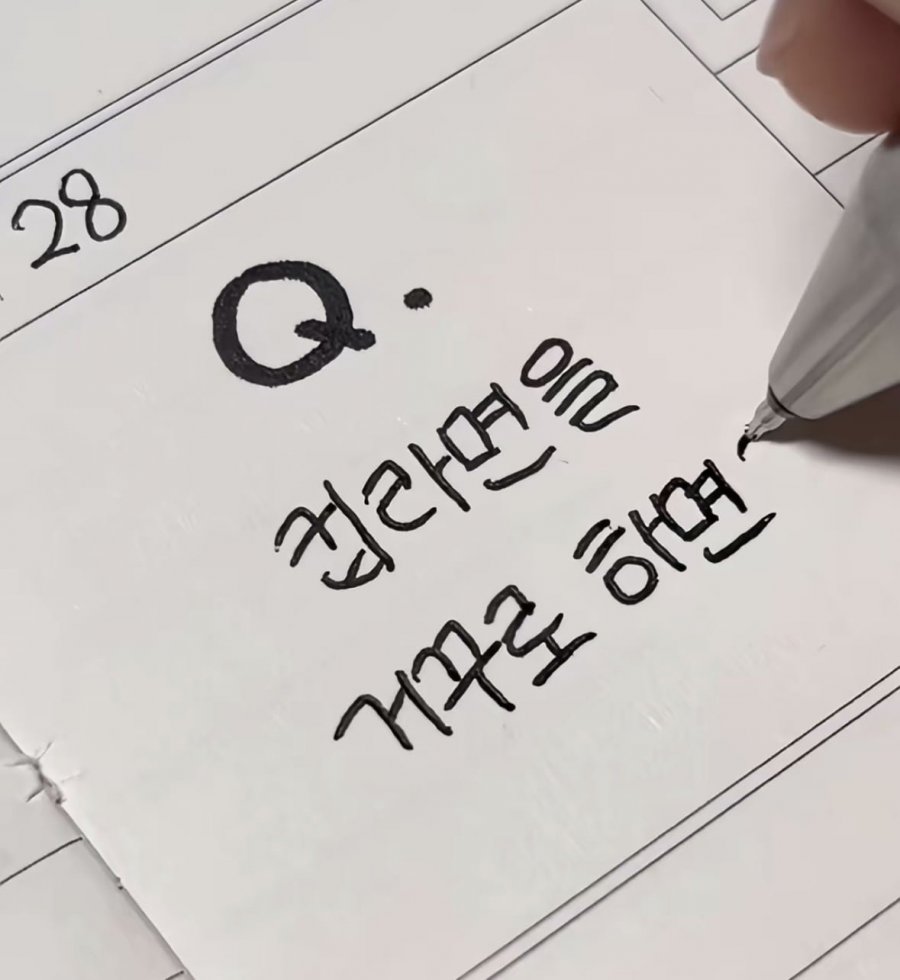 28
Q.
컵라면을
거꾸로 하면